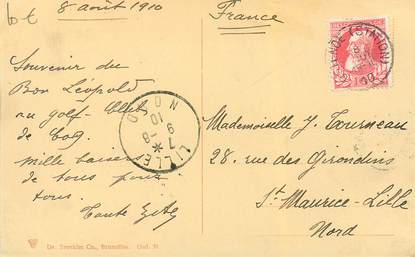 8 août 1910
France
Souvenir du
Bon Léopold
au golf-Club
de Coq.
Mille baisers
de tous pour
tous.
Tante
Mademoiselle J. Tourneau
28, rue des Girondins
St Maurice-Lille
Nord
OSTENDE (STATION)
LILLE
NORD
7 - 8
9
10
Dr. Trenkler Co., Bruxelles.